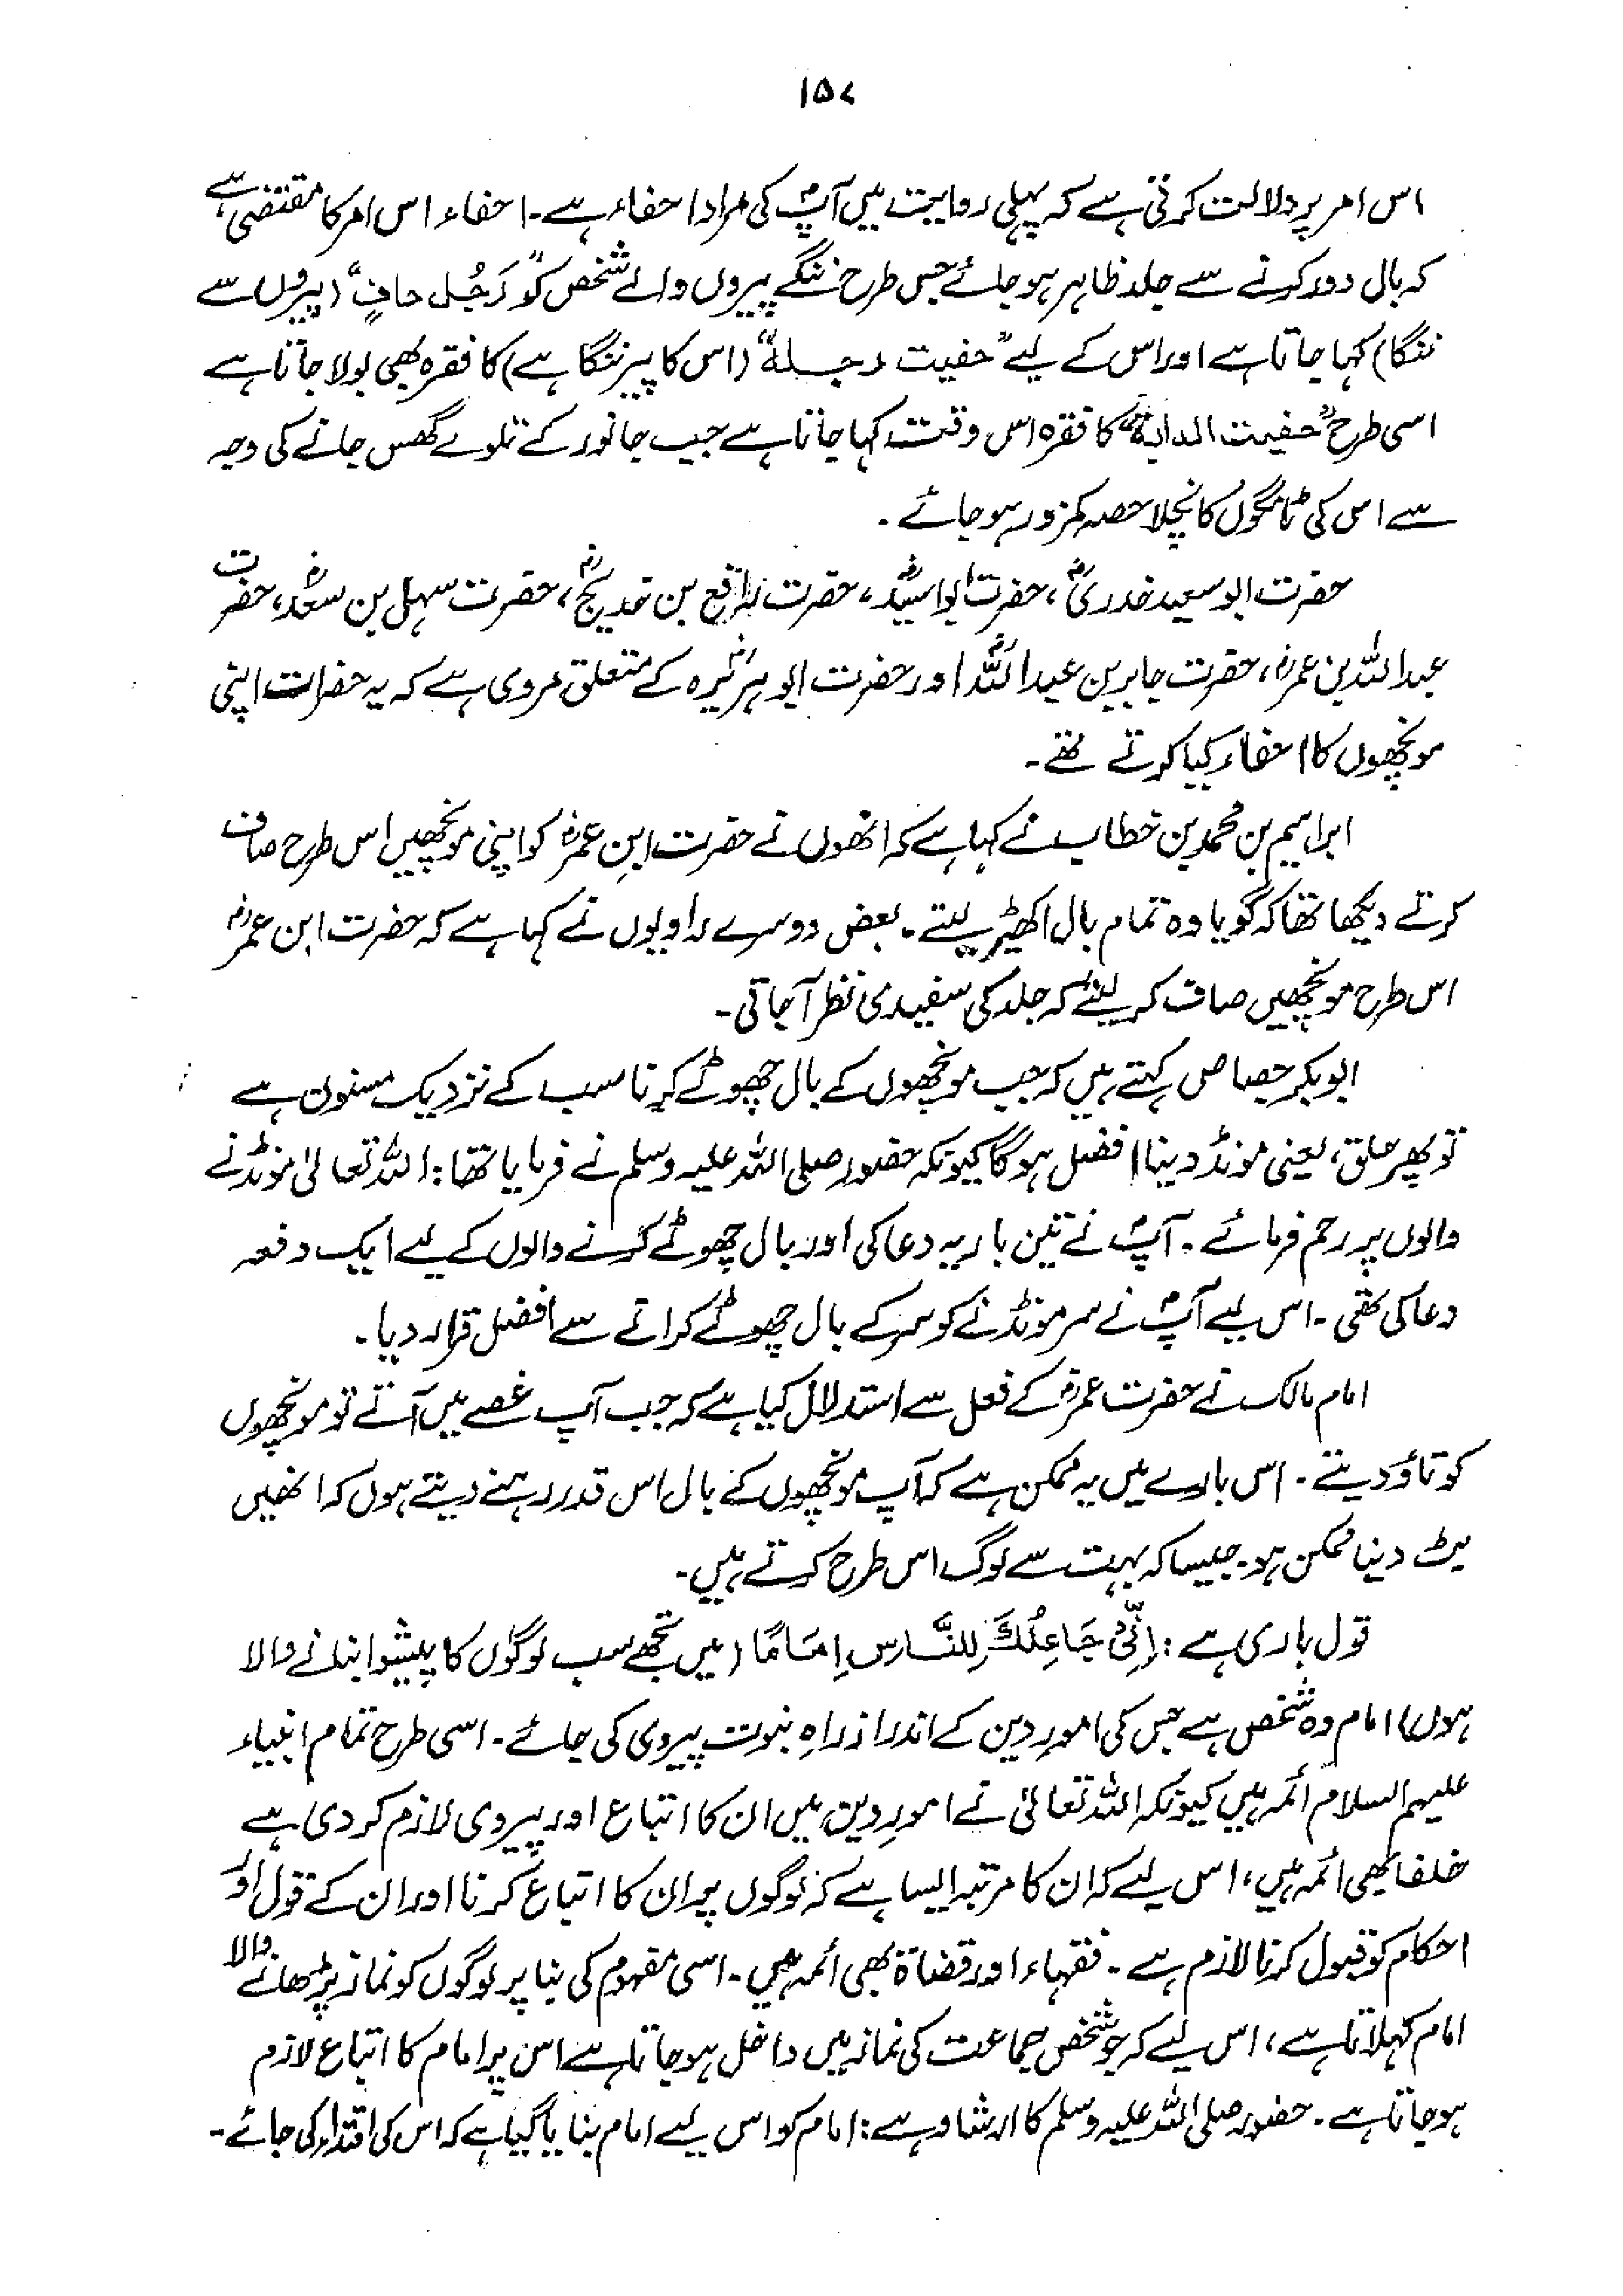 ۱۵۷
اس امر پر دلالت کرتی ہے کہ پہلی روایت میں آپؐ کی مراد احفاء ہے۔ احفاء اس امر کا مقتضی ہے
کہ بال دور کرنے سے جلد ظاہر ہو جائے جس طرح ننگے پیروں والے شخص کو "رَجُل حافٍ" (پیروں سے
ننگا) کہا جاتا ہے اور اس کے لیے "حفیت رجلہ" (اس کا پیر ننگا ہے) کا فقرہ بھی بولا جاتا ہے
اسی طرح "حفیت الدابۃ" کا فقرہ اس وقت کہا جاتا ہے جب جانور کے تلوے گھس جانے کی وجہ
سے اس کی ٹانگوں کا نچلا حصہ کمزور ہو جائے۔
حضرت ابو سعید خدریؓ، حضرت ابو اسیدؓ، حضرت رافع بن خدیجؓ، حضرت سہل بن سعدؓ، حضرت
عبداللہ بن عمرؓ، حضرت جابر بن عبداللہؓ اور حضرت ابو ہریرہؓ کے متعلق مروی ہے کہ یہ حضرات اپنی
مونچھوں کا احفاء کیا کرتے تھے۔
ابراہیم بن محمد بن خطاب نے کہا ہے کہ انھوں نے حضرت ابنِ عمرؓ کو اپنی مونچھیں اس طرح صاف
کرتے دیکھا تھا کہ گویا وہ تمام بال اکھیڑ لیتے۔ بعض دوسرے راویوں نے کہا ہے کہ حضرت ابن عمرؓ
اس طرح مونچھیں صاف کر لیتے کہ جلد کی سفیدی نظر آ جاتی۔
ابوبکر جصاص کہتے ہیں کہ جب مونچھوں کے بال چھوٹے کرنا سب کے نزدیک مسنون ہے
تو پھر حلق، یعنی مونڈ دینا افضل ہوگا کیونکہ حضور صلی اللہ علیہ وسلم نے فرمایا تھا: اللہ تعالیٰ مونڈنے
والوں پر رحم فرمائے۔ آپؐ نے تین بار یہ دعا کی اور بال چھوٹے کرنے والوں کے لیے ایک دفعہ
دعا کی تھی۔ اس لیے آپؐ نے سر مونڈنے کو سر کے بال چھوٹے کرانے سے افضل قرار دیا۔
امام مالک نے حضرت عمرؓ کے فعل سے استدلال کیا ہے کہ جب آپ غصے میں آتے تو مونچھوں
کو تاؤ دیتے۔ اس بارے میں یہ ممکن ہے کہ آپ مونچھوں کے بال اس قدر رہنے دیتے ہوں کہ انھیں
بٹ دینا ممکن ہو۔ جیسا کہ بہت سے لوگ اس طرح کرتے ہیں۔
قول باری ہے: اِنِّیْ جَاعِلُكَ لِلنَّاسِ اِمَامًا (میں تجھے سب لوگوں کا پیشوا بنانے والا
ہوں) امام وہ شخص ہے جس کی امورِ دین کے اندر از راہِ نبوت پیروی کی جائے۔ اسی طرح تمام انبیاء
علیہم السلام ائمہ ہیں کیونکہ اللہ تعالیٰ نے امورِ دین میں ان کا اتباع اور پیروی لازم کر دی ہے
خلفا بھی ائمہ ہیں، اس لیے کہ ان کا مرتبہ ایسا ہے کہ لوگوں پر ان کا اتباع کرنا اور ان کے قول اور
احکام کو قبول کرنا لازم ہے۔ فقہاء اور قضاۃ بھی ائمہ ہیں۔ اسی مفہوم کی بنا پر لوگوں کو نماز پڑھانے والا
امام کہلاتا ہے، اس لیے کہ جو شخص جماعت کی نماز میں داخل ہو جاتا ہے اس پر امام کا اتباع لازم
ہو جاتا ہے۔ حضور صلی اللہ علیہ وسلم کا ارشاد ہے: امام کو اس لیے امام بنایا گیا ہے کہ اس کی اقتداء کی جائے۔